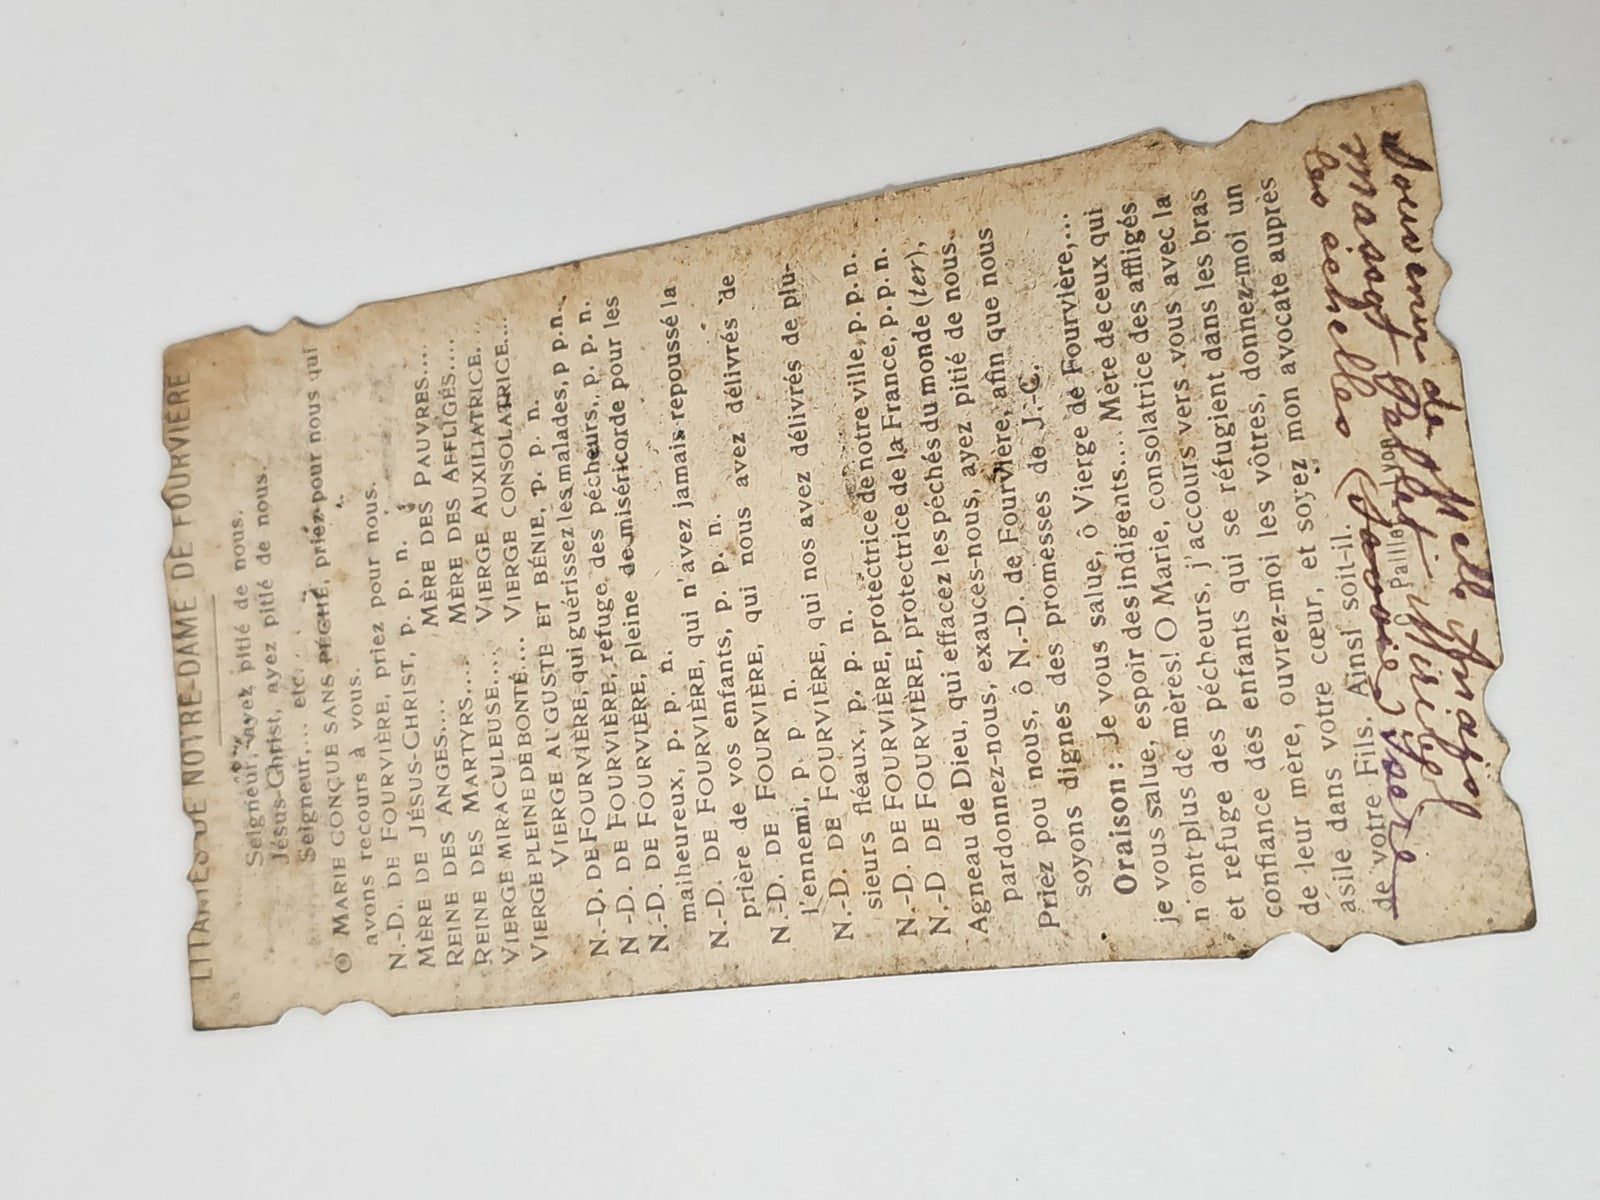 LITANIES DE NOTRE-DAME DE FOURVIÈRE
Seigneur, ayez pitié de nous.
Jésus-Christ, ayez pitié de nous.
Seigneur,... etc...
O MARIE CONÇUE SANS PÉCHÉ, priez pour nous qui
avons recours à vous.
N.-D. DE FOURVIÈRE, priez pour nous.
MÈRE DE JÉSUS-CHRIST, p. p. n.
MÈRE DES PAUVRES....
REINE DES ANGES....
MÈRE DES AFFLIGÉS....
REINE DES MARTYRS....
VIERGE AUXILIATRICE...
VIERGE MIRACULEUSE....
VIERGE CONSOLATRICE...
VIERGE PLEINE DE BONTÉ....
VIERGE AUGUSTE ET BÉNIE, p. p. n.
N.-D. DE FOURVIÈRE, qui guérissez les malades, p p. n.
N.-D. DE FOURVIÈRE, refuge des pécheurs, p. p. n.
N.-D. DE FOURVIÈRE, pleine de miséricorde pour les
malheureux, p. p. n.
N.-D. DE FOURVIÈRE, qui n'avez jamais repoussé la
prière de vos enfants, p. p. n.
N.-D. DE FOURVIÈRE, qui nous avez délivrés de
l'ennemi, p. p n.
N.-D. DE FOURVIÈRE, qui nos avez délivrés de plu-
sieurs fléaux, p. p. n.
N.-D. DE FOURVIÈRE, protectrice de notre ville, p. p. n.
N.-D. DE FOURVIÈRE, protectrice de la France, p. p. n.
Agneau de Dieu, qui effacez les péchés du monde (ter),
pardonnez-nous, exaucez-nous, ayez pitié de nous.
Priez pou nous, ô N.-D. de Fourvière, afin que nous
soyons dignes des promesses de J.-C.
Oraison : Je vous salue, ô Vierge de Fourvière,...
je vous salue, espoir des indigents.... Mère de ceux qui
n'ont plus de mères! O Marie, consolatrice des affligés
et refuge des pécheurs, j'accours vers vous avec la
confiance des enfants qui se réfugient dans les bras
de leur mère, ouvrez-moi les vôtres, donnez-moi un
asile dans votre cœur, et soyez mon avocate auprès
de votre Fils. Ainsi soit-il.
les échelles (Savoie)
Souvenir de Melle